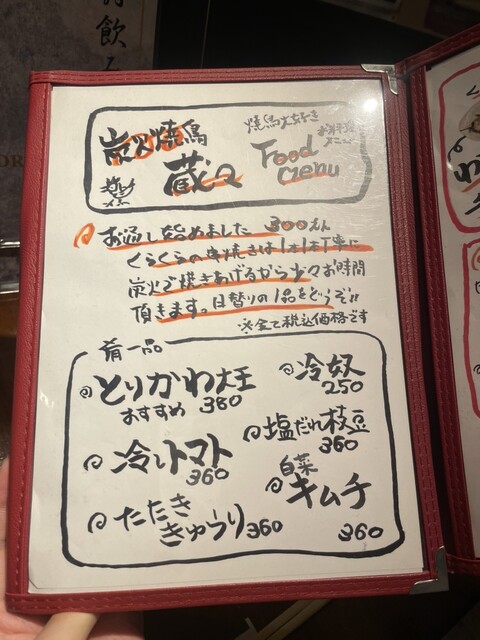 炭火焼鳥
蔵々
焼鳥大好き
お料理
メニュー
Food
menu
お通し始めました 300えん
くらくらの串焼きは1本1本丁寧に
炭火で焼きあげるから少々お時間
頂きます。日替りの1品をどうぞ!!
※全て税込価格です
肴一品
とりかわ大王
おすすめ 380
冷奴
250
塩だれ枝豆
360
冷しトマト
360
白菜
キムチ
360
たたき
きゅうり 360